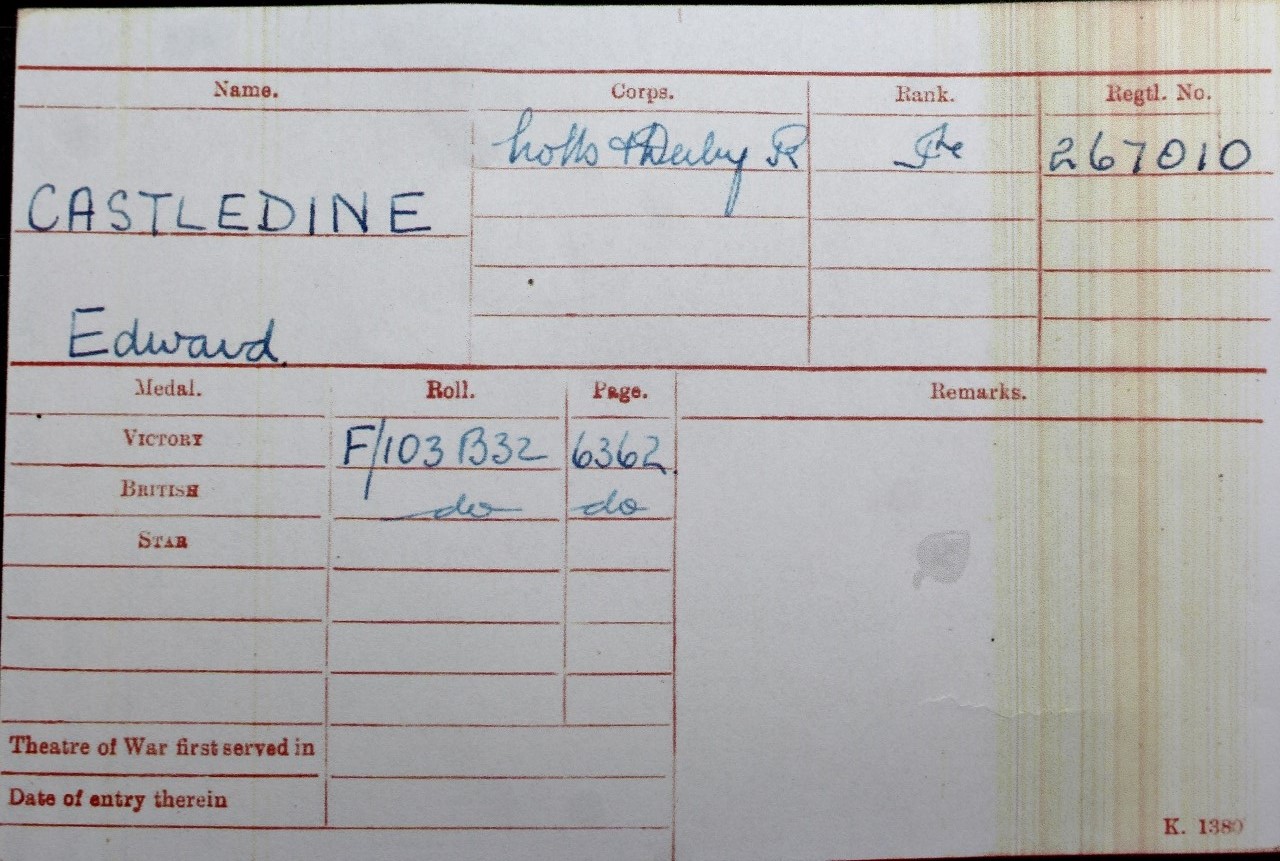 Name. Corps. Rank. Regtl. No.
Notts & Derby R Pte 267010
CASTLEDINE
Edward
Medal. Roll. Page. Remarks.
VICTORY F/103 B32 6362
BRITISH do do
STAR
Theatre of War first served in
Date of entry therein
K. 1380